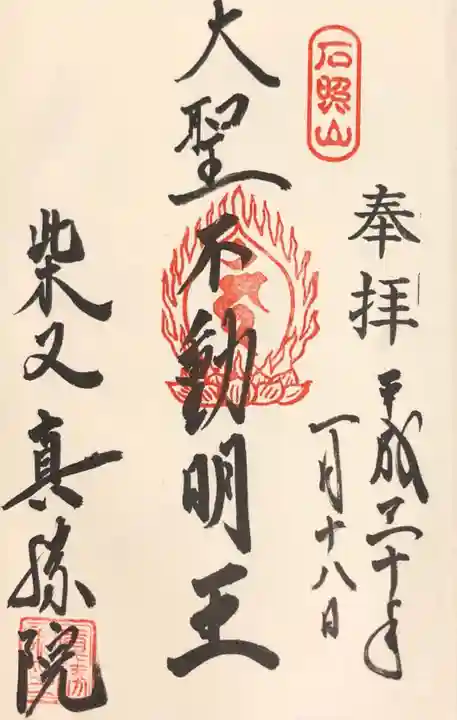 石照山
奉拝
平成三十年
一月十八日
大聖不動明王
柴又真勝院